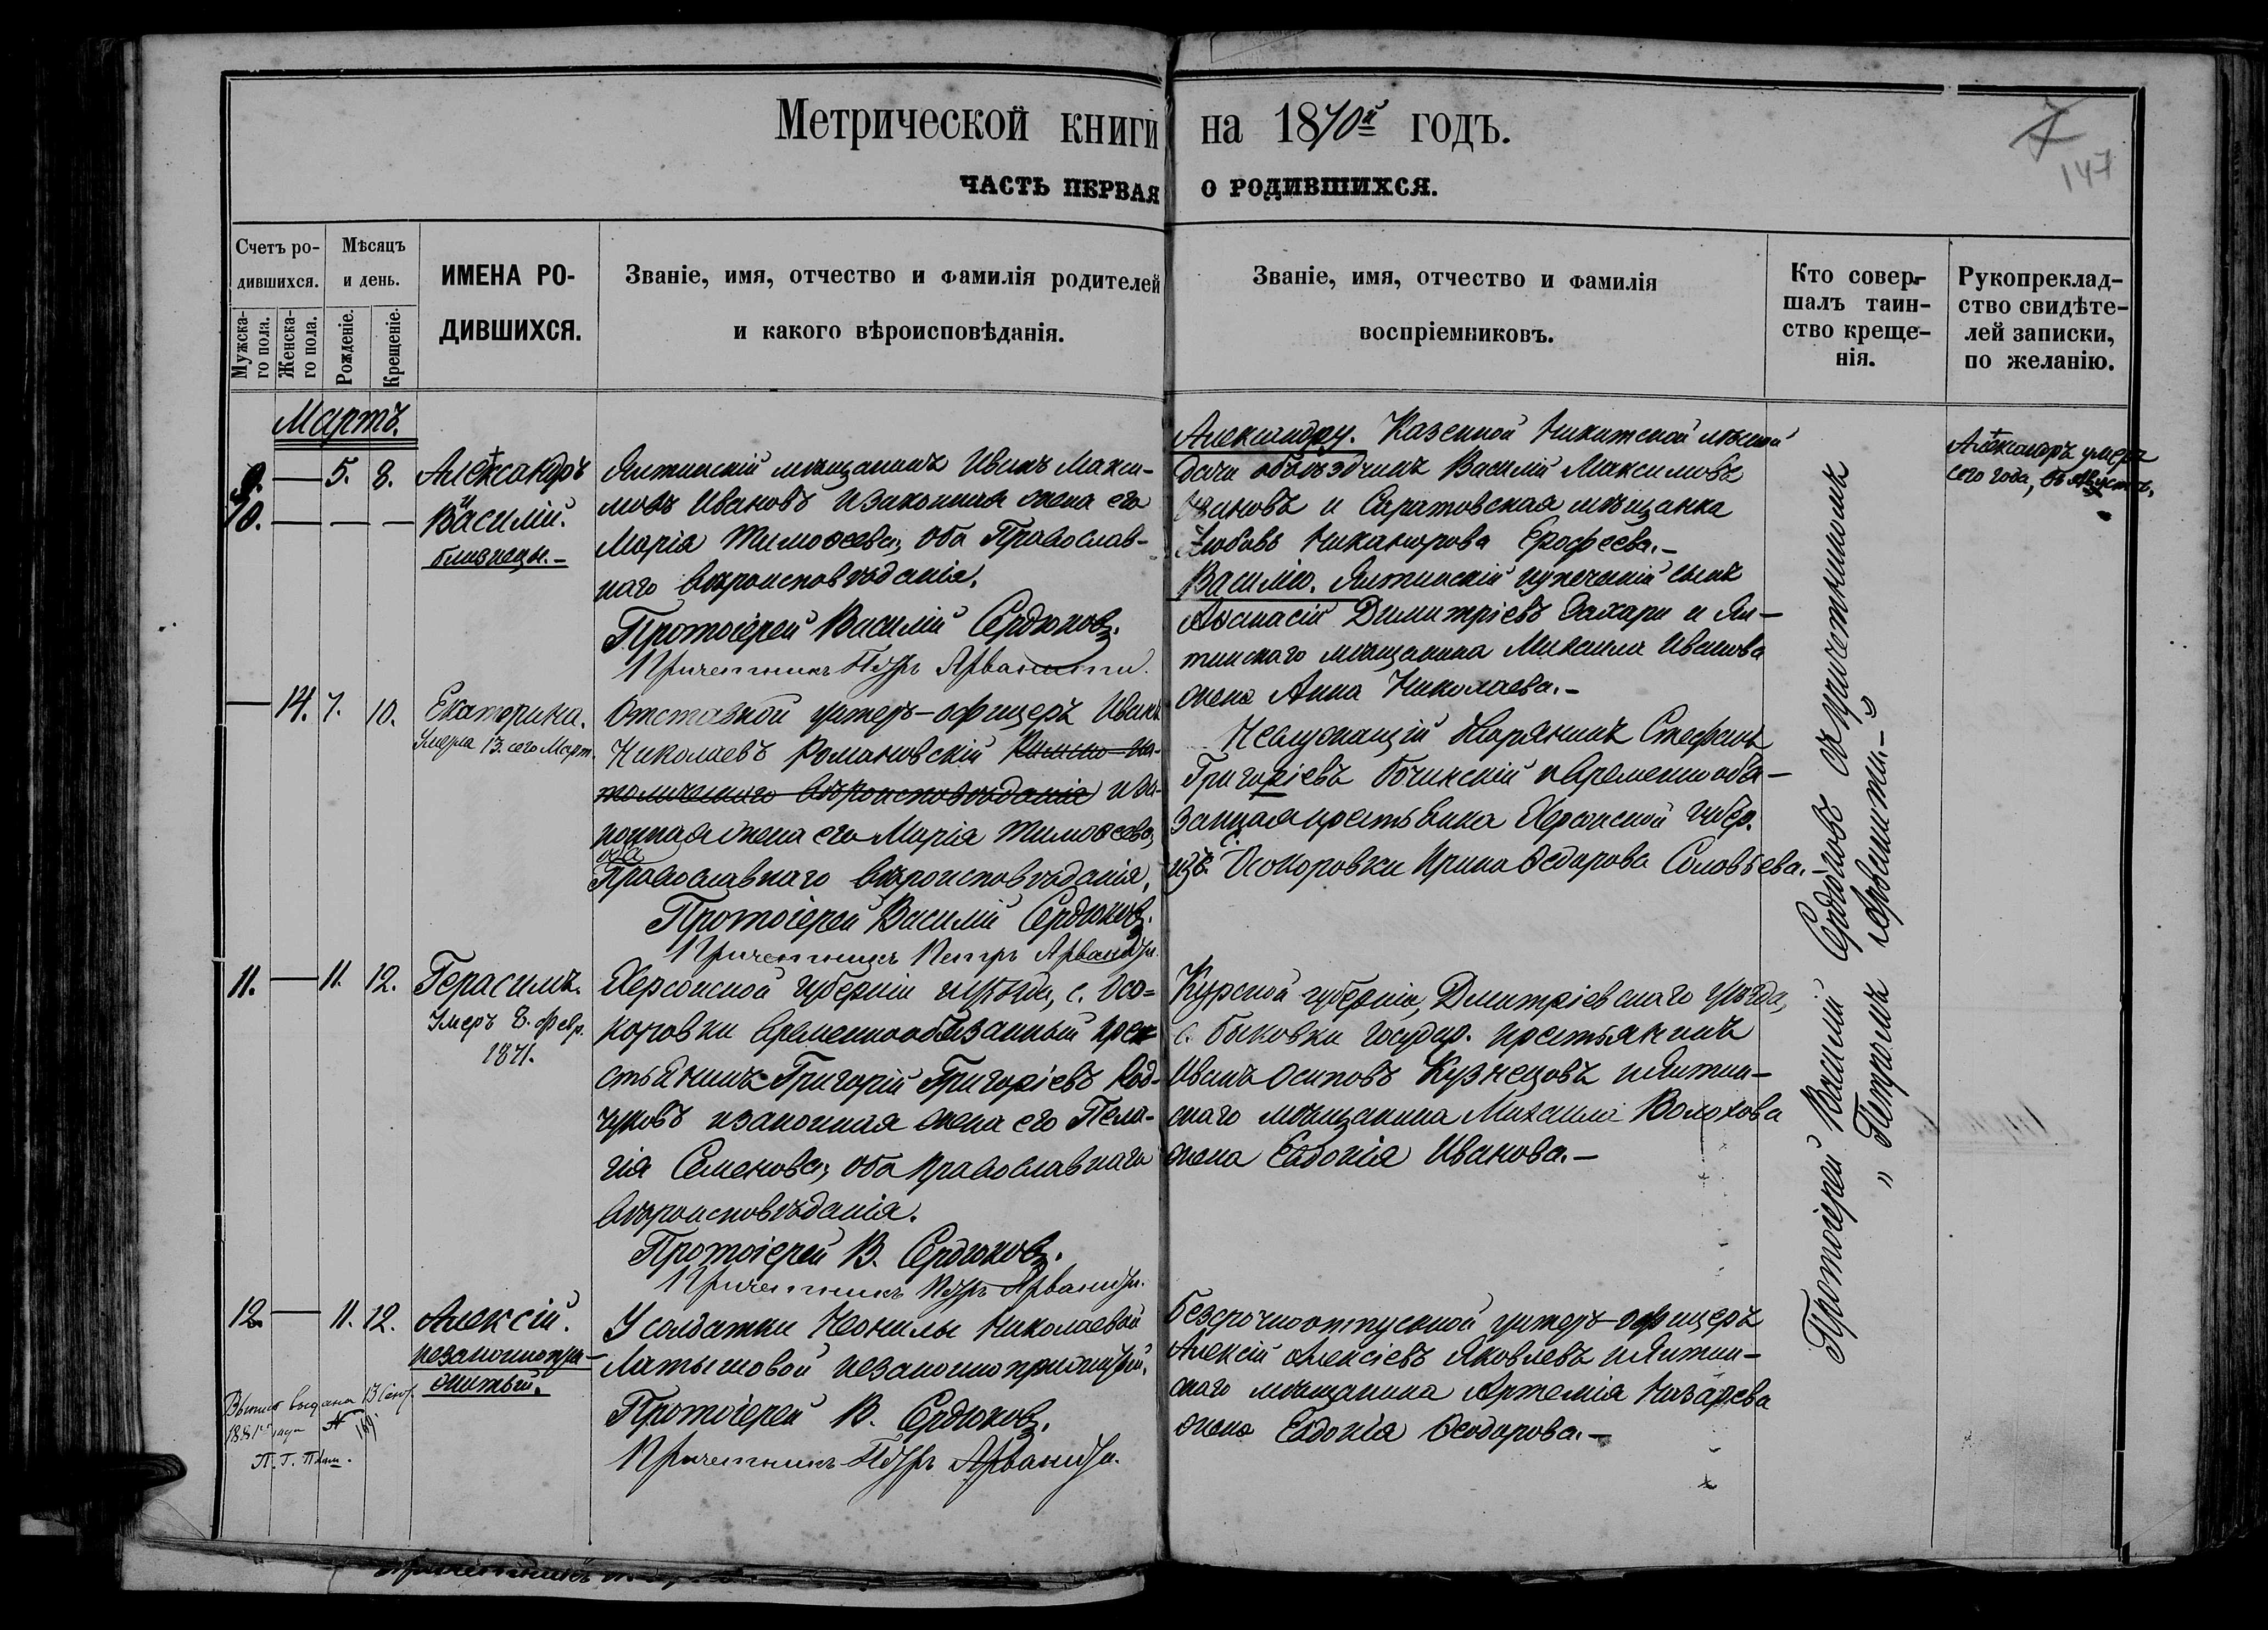 Метрической книги на 1870й годъ.
7
147
ЧАСТЬ ПЕРВАЯ О РОДИВШИХСЯ.
Счетъ ро-
дившихся.
Мужска-
го пола.
Женска-
го пола.
Мѣсяцъ
и день.
Рожденіе.
Крещеніе.
ИМЕНА РО-
ДИВШИХСЯ.
Званіе, имя, отчество и фамилія родителей
и какого вѣроисповѣданія.
Званіе, имя, отчество и фамилія
воспріемниковъ.
Кто совер-
шалъ таин-
ство креще-
нія.
Рукоприклад-
ство свидѣте-
лей записки,
по желанію.
Мартъ.
9. — 5. 8.
10. — — —
Александръ
и
Василій.
близнецы.—
Ялтинскій мѣщанинъ Иванъ Макси-
мовъ Ивановъ и законная жена его
Марія Тимоѳеева, оба Православ-
наго вѣроисповѣданія.
Протоіерей Василій Сердюковъ.
Причетникъ Петръ Арванити.
Александру. Казенной Никитской лѣсной
дачи объѣздчикъ Василій Максимовъ
Ивановъ и Саратовская мѣщанка
Любовь Никанорова Ерофеева.—
Василію. Ялтинскій купеческій сынъ
Аѳанасій Димитріевъ Захари и Ял-
тинскаго мѣщанина Михаила Иванова
жена Анна Николаева.—
Александръ умеръ
сего года, въ Августѣ.
— 14. 7. 10.
Екатерина.
Умерла 13. сего Март.
Отставной унтеръ-офицеръ Иванъ
Николаевъ Романовскій Римско-ка-
толическаго вѣроисповѣданія и за-
конная жена его Марія Тимоѳеева,
оба
Православнаго вѣроисповѣданія,
Протоіерей Василій Сердюковъ.
Причетникъ Петръ Арванити.
Неслужащій Дворянинъ Стефанъ
Григоріевъ Бочинскій и временнообя-
занная крестьянка Херсонской губер.
с. Осокоровки Ирина Ѳедорова Соловьева.—
11. — 11. 12.
Герасимъ.
Умеръ 8. февр.
1871.
Херсонской губерніи и уѣзда, с. Осо-
коровки временнообязанный кре-
стьянинъ Григорій Григоріевъ
и законная жена его Пела-
гія Семенова, оба православнаго
вѣроисповѣданія.
Протоіерей В. Сердюковъ.
Причетникъ Петръ Арванити.
Курской губерніи, Дмитріевскаго уѣзда,
с. Быковки государ. крестьянинъ
Иванъ Осиповъ Кузнецовъ и Ялтин-
скаго мѣщанина Михаила Волохова
жена Евдокія Иванова.—
12. — 11. 12.
Алексій.
незаконнорож-
Выпись выдана 13 Сент.
1881го года №
У солдатки Неонилы Николаевой
Латышовой незаконноприжитый.
Протоіерей В. Сердюковъ.
Причетникъ Петръ Арванити.
Безсрочноотпускной унтеръ-офицеръ
Алексій Алексіевъ Яковлевъ и Ялтин-
скаго мѣщанина Артемія Назарева
жена Евдокія Ѳеодорова.—
Протоіерей Василій Сердюковъ съ причетникомъ
„ Петромъ Арванити.—